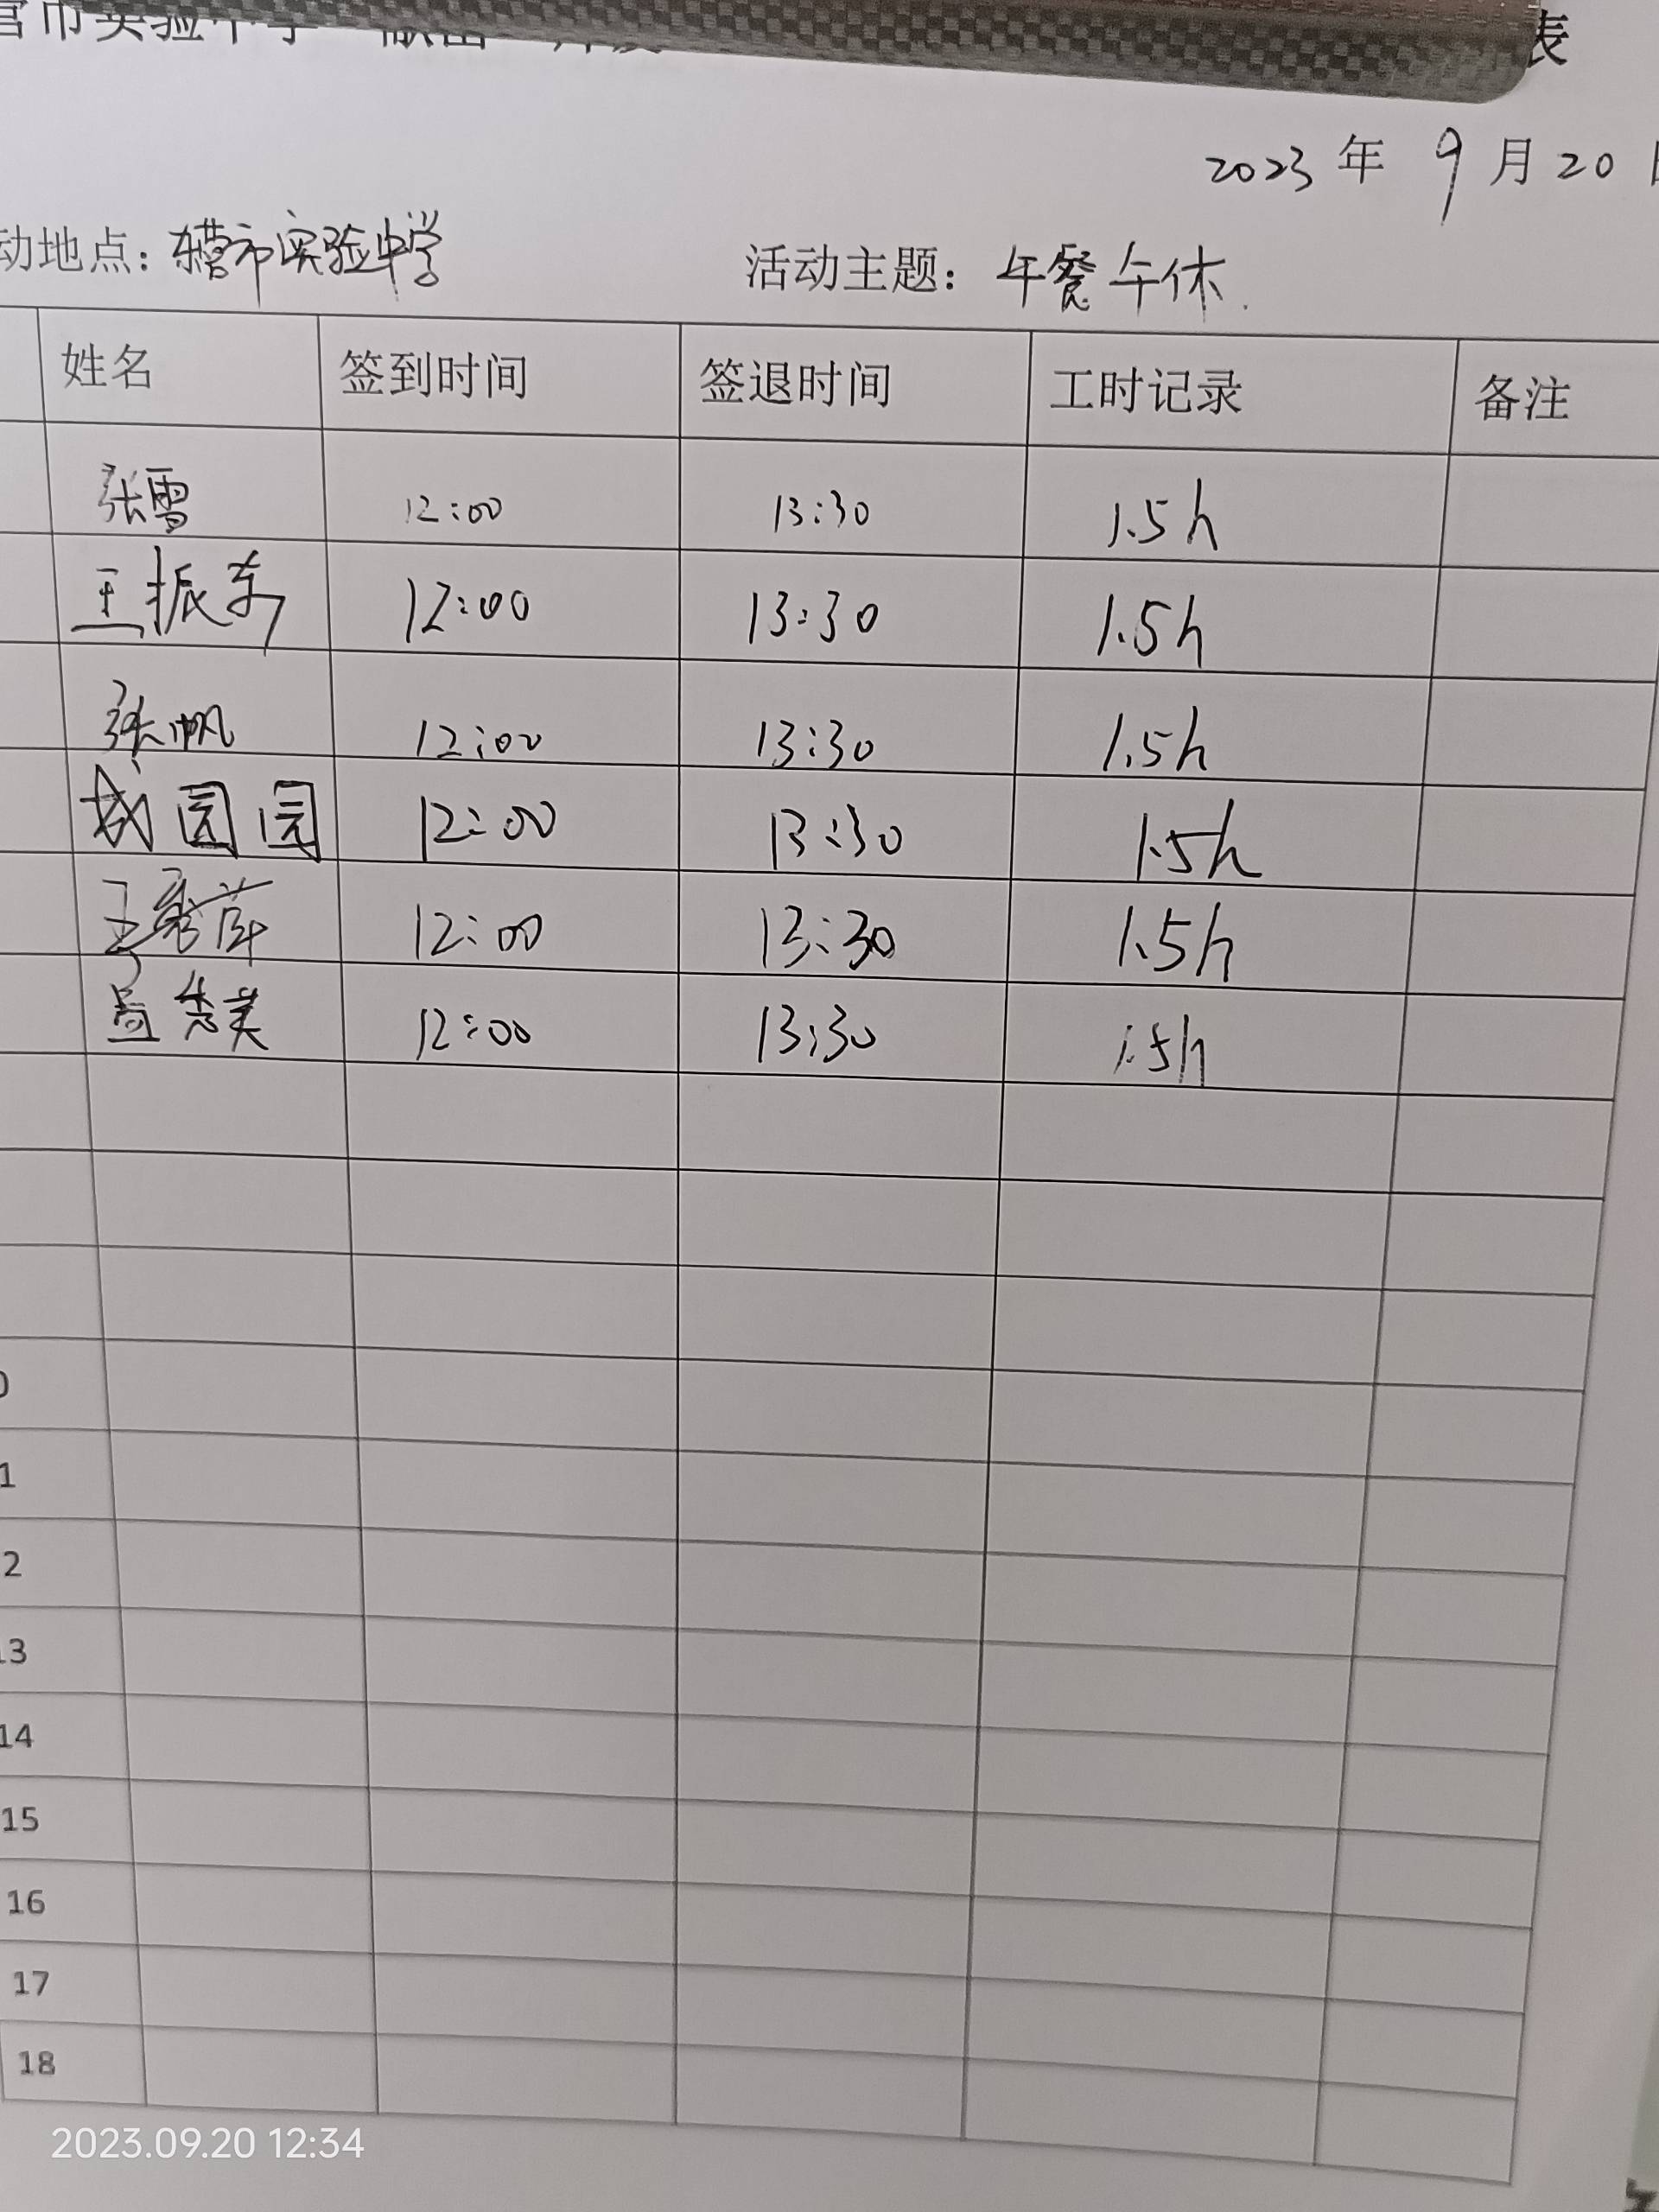 市实验中学
表
2023 年 9 月 20
动地点：东营市实验中学 活动主题：午餐午休.
姓名 签到时间 签退时间 工时记录 备注
张雪 12:00 13:30 1.5h
王振东 12:00 13:30 1.5h
张帆 12:00 13:30 1.5h
成圆圆 12:00 13:30 1.5h
王秀萍 12:00 13:30 1.5h
秀美 12:00 13:30 1.5h
0
1
2
13
14
15
16
17
18
2023.09.20 12:34